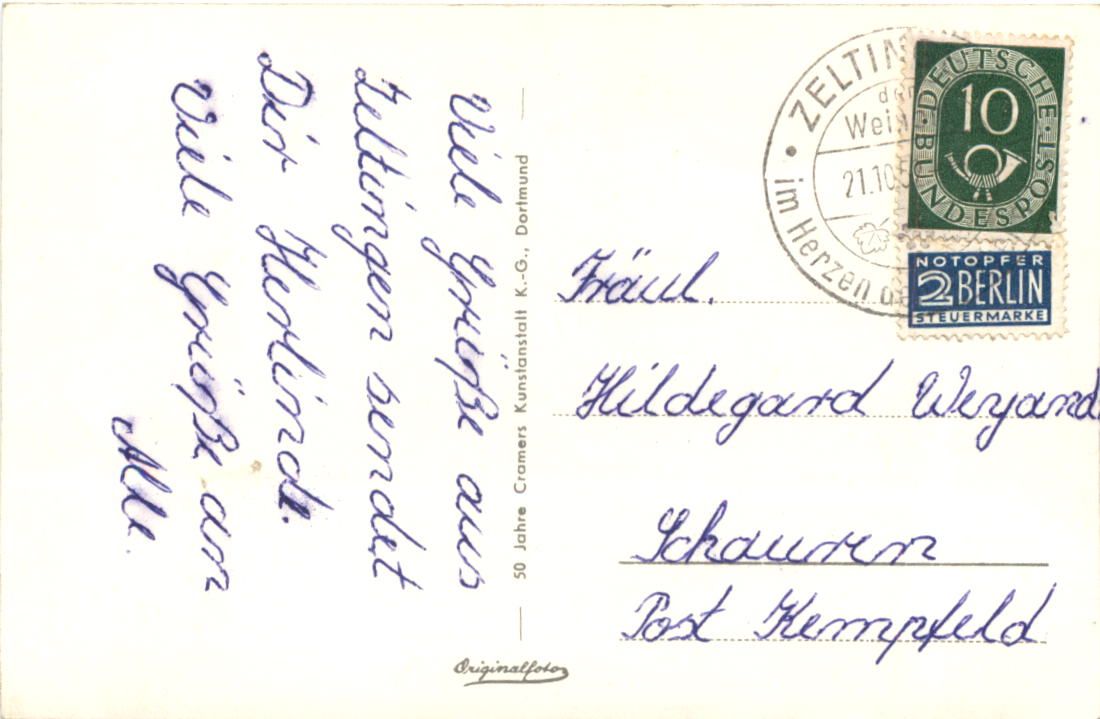 Viele Grüße aus
Zeltingen sendet
Dir Herlinde.
Viele Grüße an
Alle.
50 Jahre Cramers Kunstanstalt K.-G., Dortmund
Originalfoto
ZELTIN
der
Wein
21.10.5
im Herzen
DEUTSCHE BUNDESPOST
10
NOTOPFER
2 BERLIN
STEUERMARKE
Fräul.
Hildegard Weyand
Schauren
Post Kempfeld